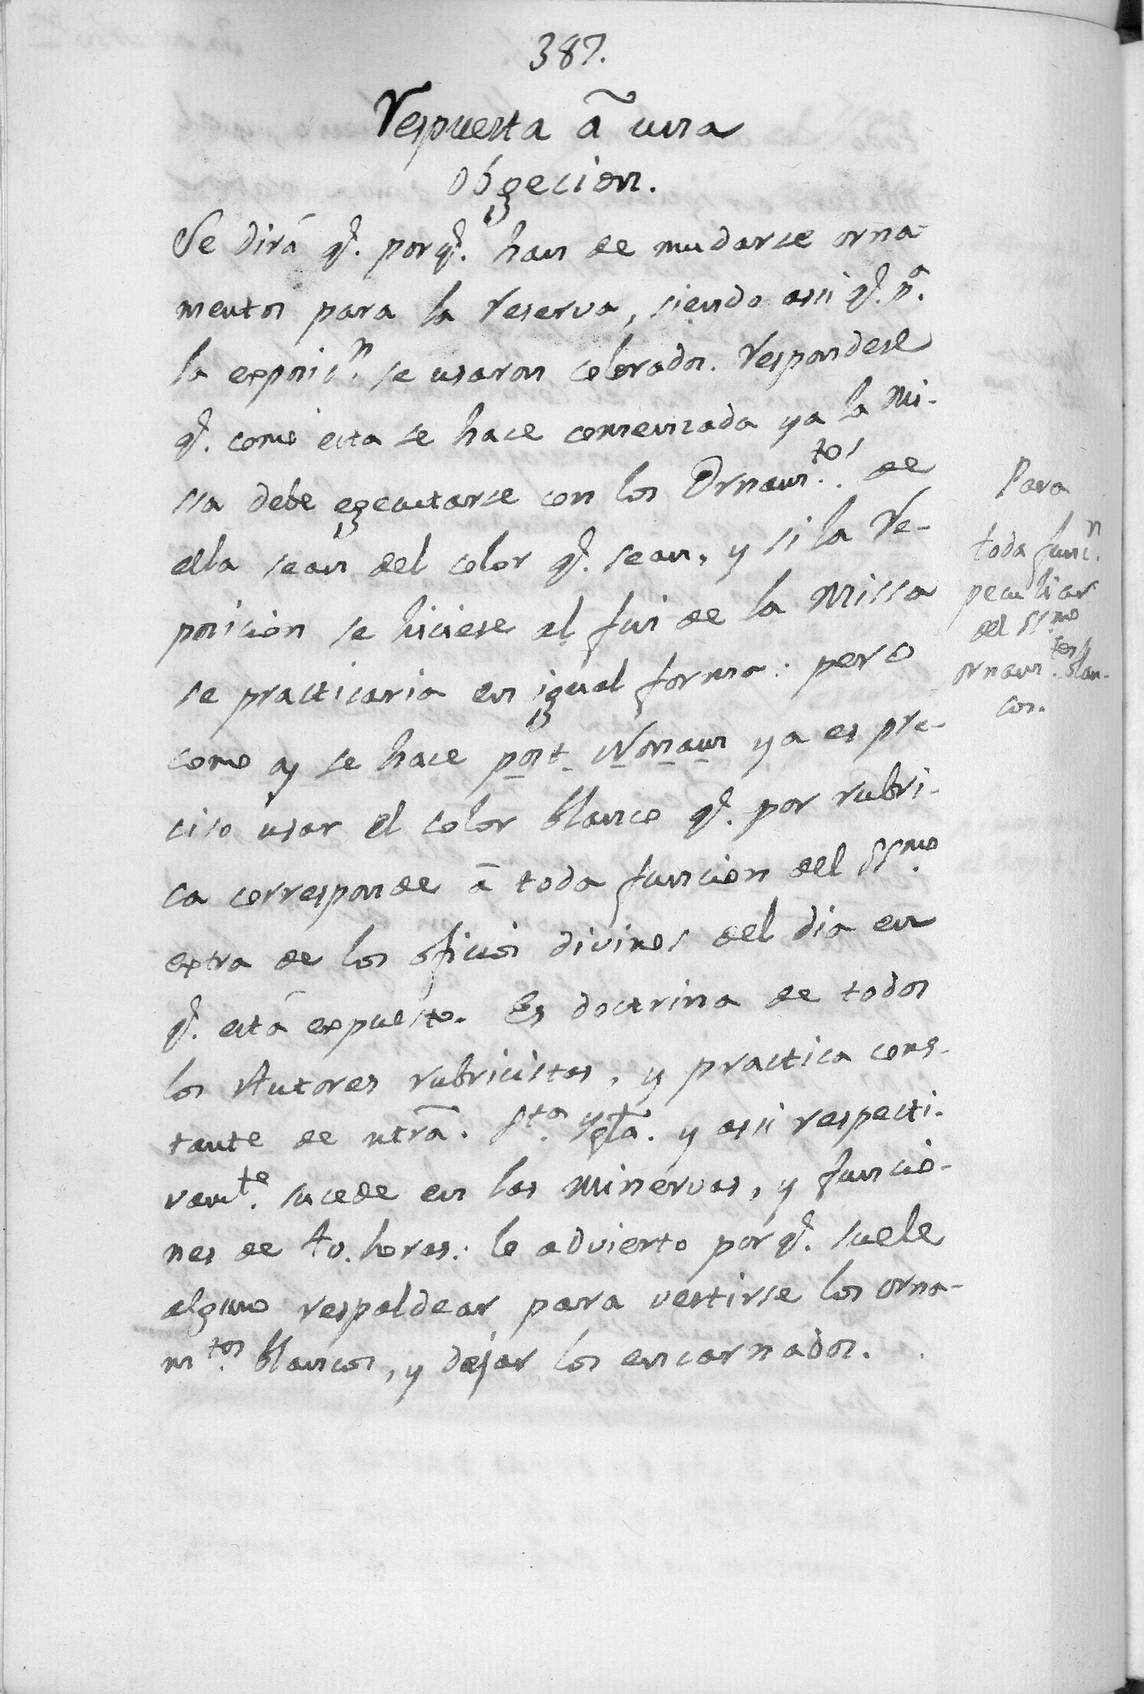 387.
Respuesta â una
obgecion.
Se dirá q.e porq.e han de mudarse orna-
mentos para la reserva, siendo assi q.e p.a
la exposic.n se usaron colorados. Respondese
q.e como esta se hace comenzada ya la Mi-
ssa debe egecutarse con los Ornam.tos de
ella sean del color q.e sean, y si la Re-
posicion se hiciese al fin de la Missa
se practicaria en igual forma: pero
como aq se hace post Nonam ya es pre-
ciso usar el color blanco q.e por rubri-
ca corresponde â toda funcion del SSmo.
extra de los oficios divinos del dia en
q.e está expuesto. Es doctrina de todos
los Autores rubricistas, y practica cons-
tante de ntrã. S.ta Ygla. y assi respecti-
vam.te sucede en las Minervas, y funcio-
nes de 40. horas: lo advierto porq.e suele
alguno respaldear para vestirse los orna-
m.tos blancos, y dejar los encarnados.
Para
toda func.n
peculiar
del SSmo
ornam.tos blan-
cos.